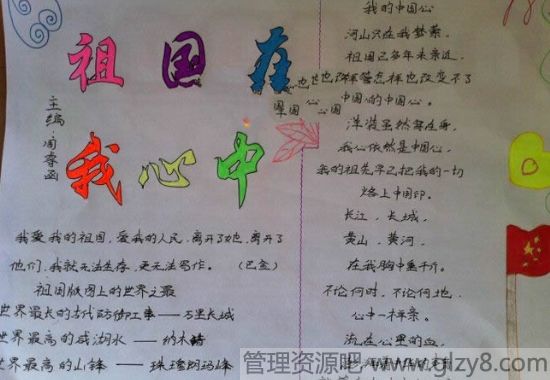 祖国在
我心中
主编
我爱我的祖国,爱我的人民,离开了她,离开了
他们,我就无法生存,更无法写作。 (巴金)
祖国版图上的世界之最
世界最长的古代防御工事——万里长城
世界最高的咸湖水——纳木错
世界最高的山锋——珠穆朗玛峰
我的中国心
河山只在我梦萦,
祖国已多年未亲近,
也改变不了
中国心。
洋装虽然穿在身,
我心依然是中国心,
我的祖先早已把我的一切
烙上中国印。
长江,长城,
黄山,黄河,
在我胸中重千斤。
不论何时,不论何地,
心中一样亲。
流在心里的血,
管理资源吧 www.glzy8.com